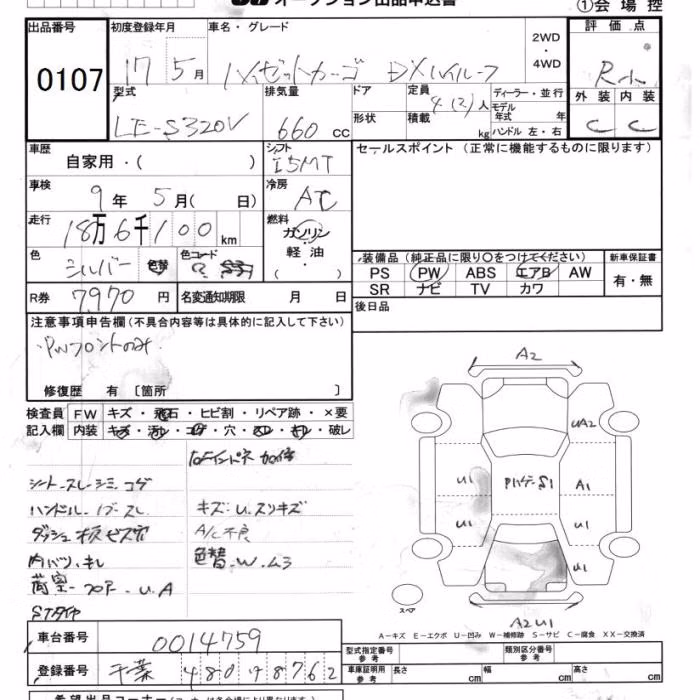 オークション出品申込書
①会場控
出品番号 初度登録年月 車名・グレード 評価点
0107 17 5月 ハイゼットカーゴ DXハイルーフ 2WD・4WD
型式 排気量 ドア 定員 4(2)人 ディーラー・並行 外装 内装
LE-S320V 660cc 形状 積載 kg モデル年式 年 C C
ハンドル 左・右
車歴 シフト セールスポイント (正常に機能するものに限ります)
自家用・( ) I5MT
車検 冷房
9年5月( 日) AC
走行 燃料
18万6千100km ガソリン・軽油・( )
色 シルバー 色替 色コード
装備品(純正品に限り〇をつけてください) 新車保証書
PS PW ABS エアB AW 有・無
SR ナビ TV カワ
R券 7970円 名変通知期限 月 日
後日品
注意事項申告欄(不具合内容等は具体的に記入して下さい)
・PWフロントのみ
修復歴 有 [箇所 ]
検査員 FW キズ・飛石・ヒビ割・リペア跡・×要
記入欄 内装 キズ・汚レ・コゲ・穴・スレ・キレ・破レ
シートスレ・シミ・コゲ
ハンドル
キズ・U・スリキズ
A/C不良
色替・W・ムラ
荷室
A2
UA2
U1 A1
U1 U1
U1
A2U1
スペア
A-キズ E-エクボ U-凹み W-補修跡 S-サビ C-腐食 XX-交換済
車台番号 0014759
登録番号 千葉 480 8762
型式指定番号 参考 類別区分番号 参考
車庫証明用 参考 長さ cm 幅 cm 高さ cm